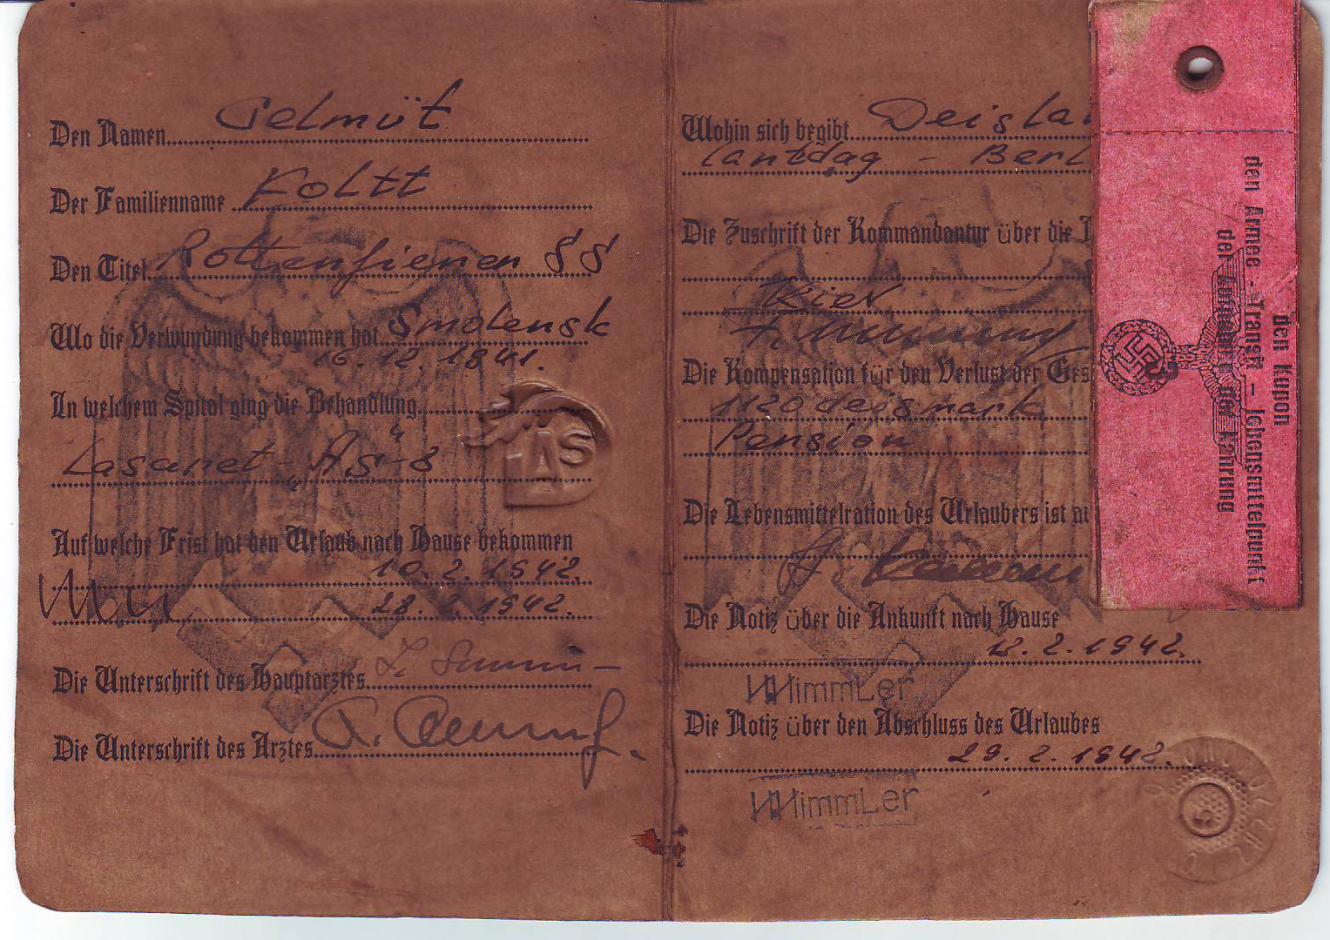 Den Namen Gelmüt
Der Familienname Koltt
Den Titel Rottenfierer SS
Wo die Verwundung bekommen hat Smolensk
16.12.1941.
In welchem Spital ging die Behandlung
Lasaret - "As-8
LAS
Auf welche Frist hat den Urlaub nach Hause bekommen
10.2.1942.
28.2.1942.
Die Unterschrift des Hauptarztes
Die Unterschrift des Arztes
Wohin sich begibt Deislan
Lantdag - Berl
Die Zuschrift der Kommandantur über die
Kiel
Die Kompensation für den Verlust der Ges
1120 deismark
Pension
Die Lebensmittelration des Urlaubers ist
Die Notiz über die Ankunft nach Hause
12.2.1942.
Himmler
Die Notiz über den Abschluss des Urlaubes
29.2.1942.
Himmler
den Kupon
den Armee - Transit - lebensmittelpunkt
der der Nahrung